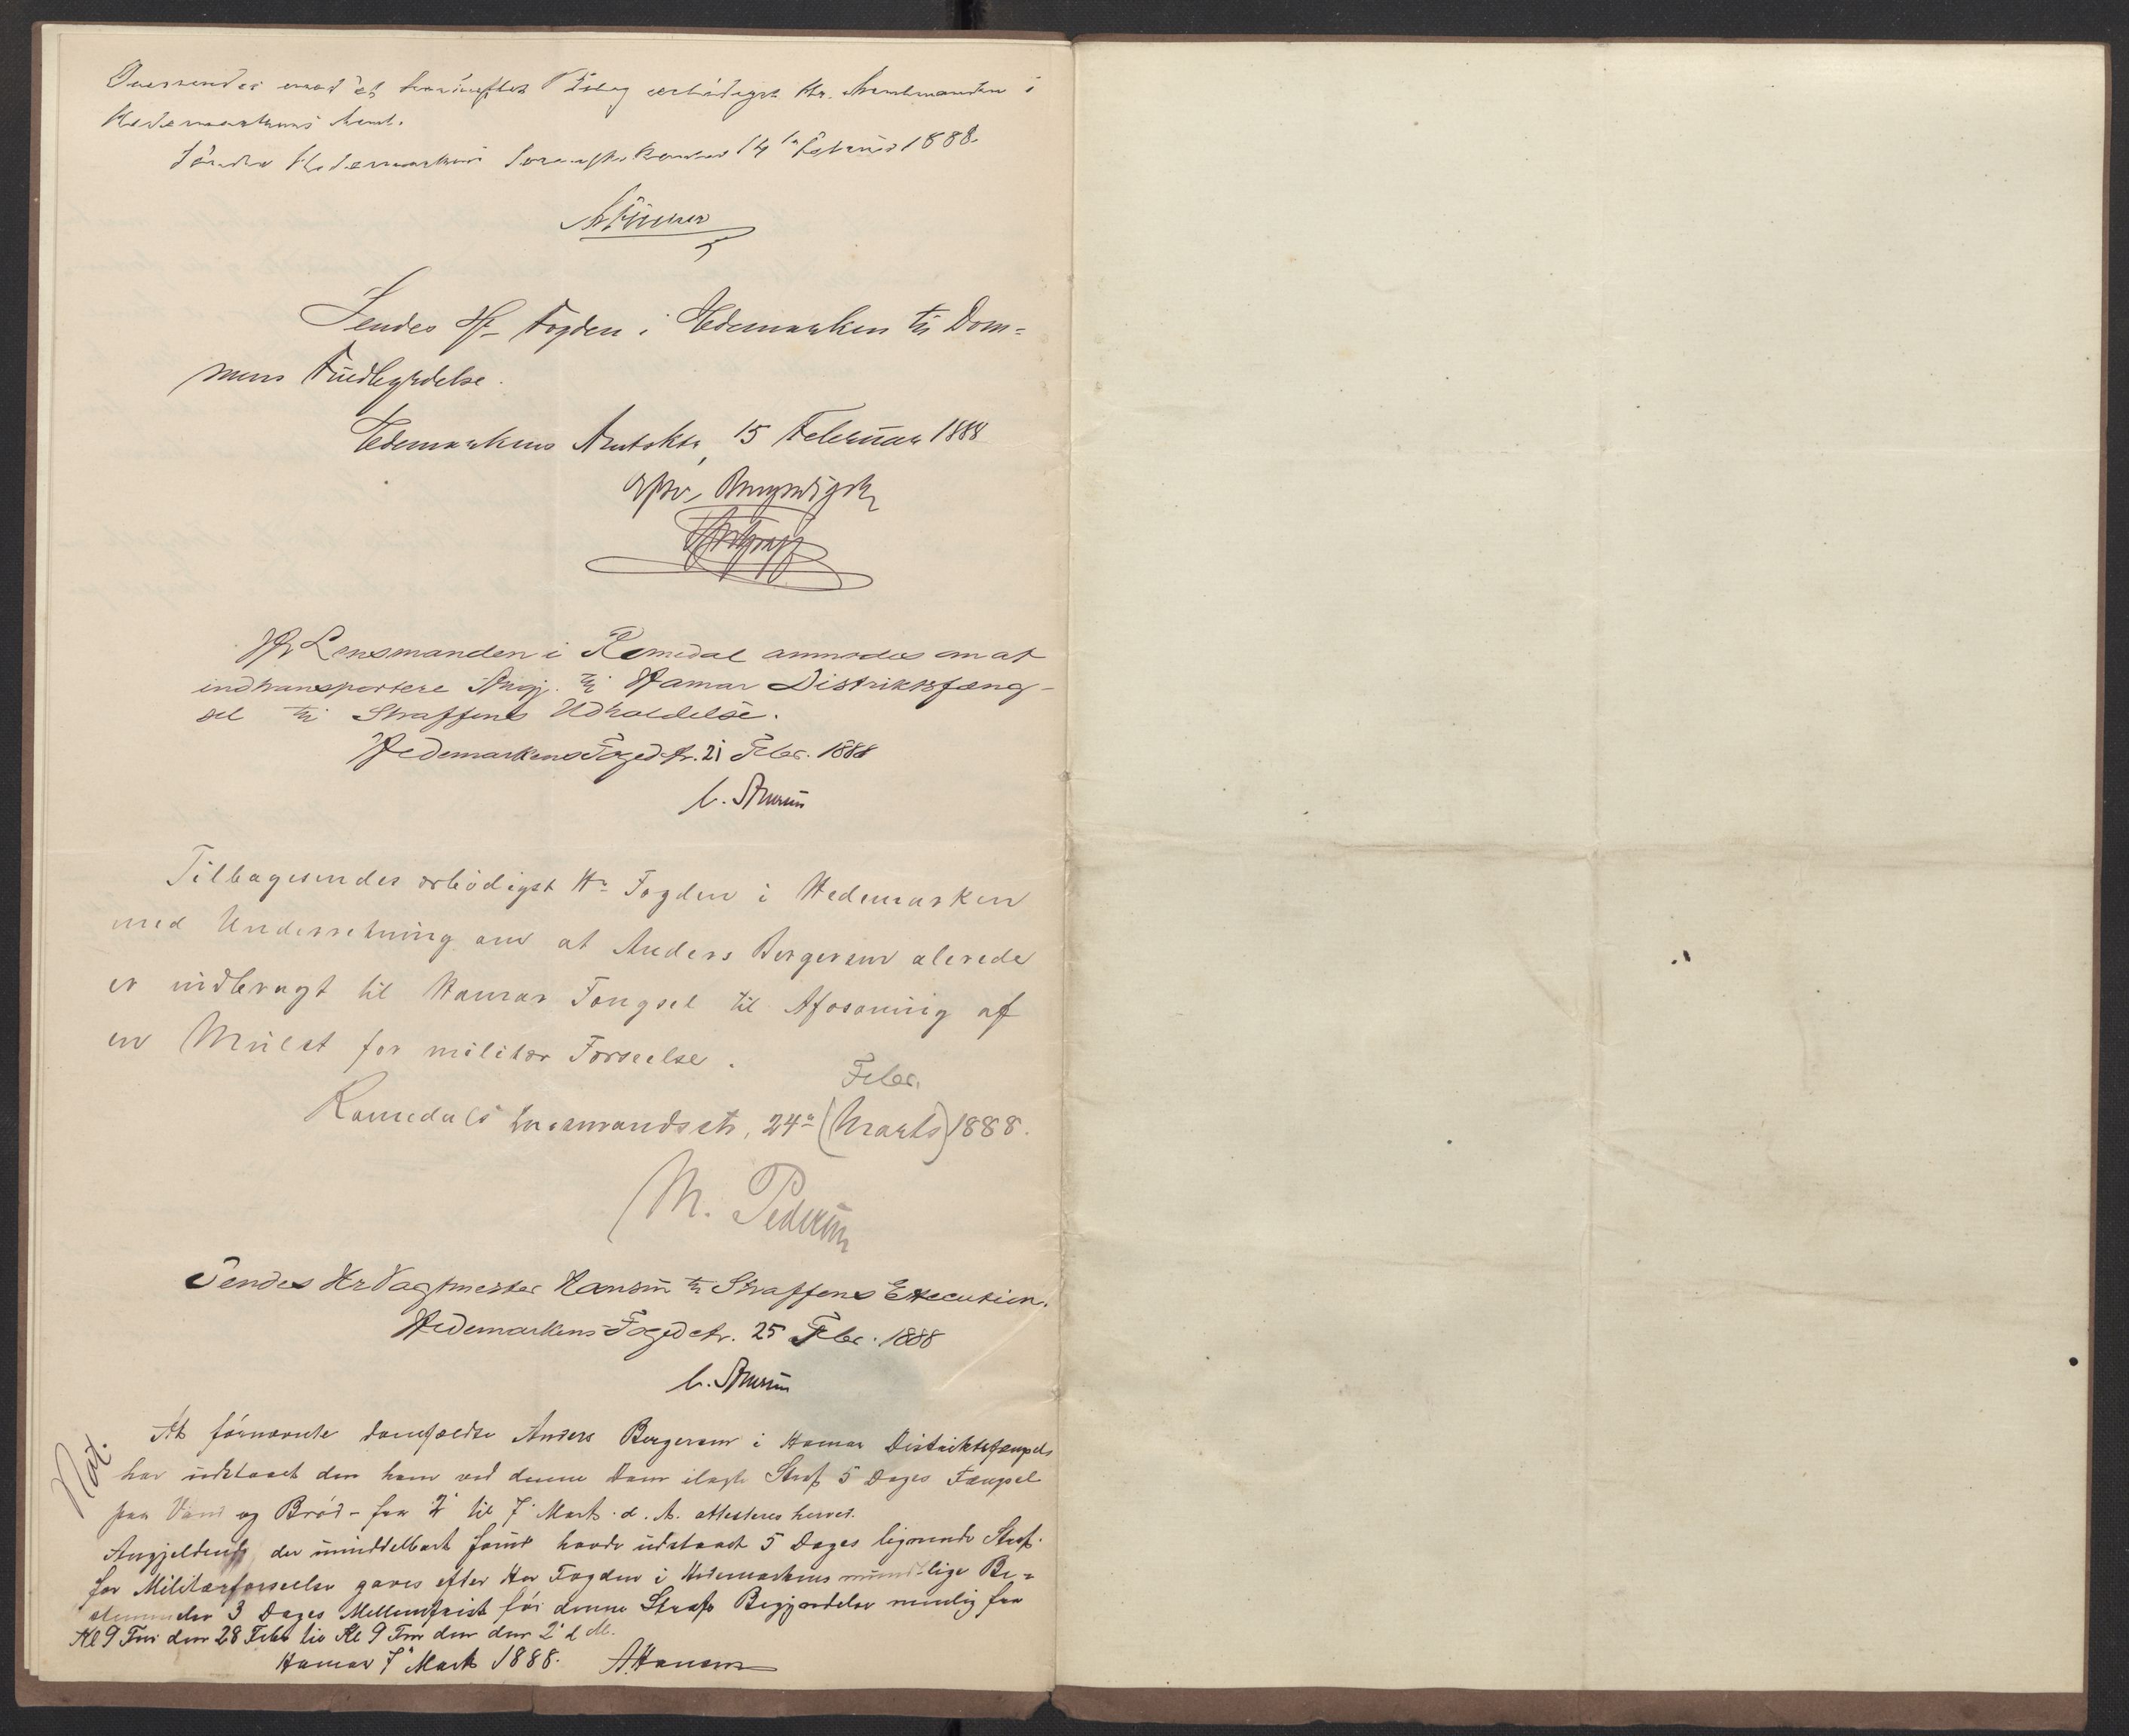 Oversendes med et Bilag ærbødigst Hr. Amtmanden i
Hedemarkens Amt.
Søndre Hedemarkens 14 Februar 1888
Sendes Hr Fogden i Hedemarken til Dom-
mens Fuldbyrdelse.
Hedemarkens Amtsktr, 15 Februar 1888
Hr Lensmanden i Romedal anmodes om at
indtransportere Angj. til Hamar Distriktsfæng-
sel til Straffens Udholdelse.
Hedemarkens Fogedctr. 21 Febr. 1888
Tilbagesendes ærbödigst Hr Fogden i Hedemarken
med Underretning om at Anders Bergersen alerede
er indbragt til Hamar Fængsel til Afsoning af
en Mulct for militær Forseelse.
Febr.
Romedals Lensmandsctr, 24de (Marts) 1888.
M. Pedersen
Sendes Hr Vagtmester Hansen til Straffens Execution.
Hedemarkens Fogedctr. 25 Febr. 1888
Not.
At fornævnte domfældte Anders Bergersen i Hamar Distriktsfængsel
har udstaaet den ham ved denne Dom ilagte Straf 5 Dages Fængsel
paa Vand og Brød - fra 2' til 7' Marts d. A. attesteres herved.
Angjeldende der umiddelbart forud havde udstaaet 5 Dages lignende Straf
for Militærforseelse gaves efter Her Fogden i Hedemarkens mundtlige Be-
stemmelse 3 Dages Mellemfrist för denne Strafs Begyndelse nemlig fra
Kl 9 Fm den 28 Febr til Kl 9 Fm den den 2' d M.
Hamar 7' Marts 1888. A. Hansen